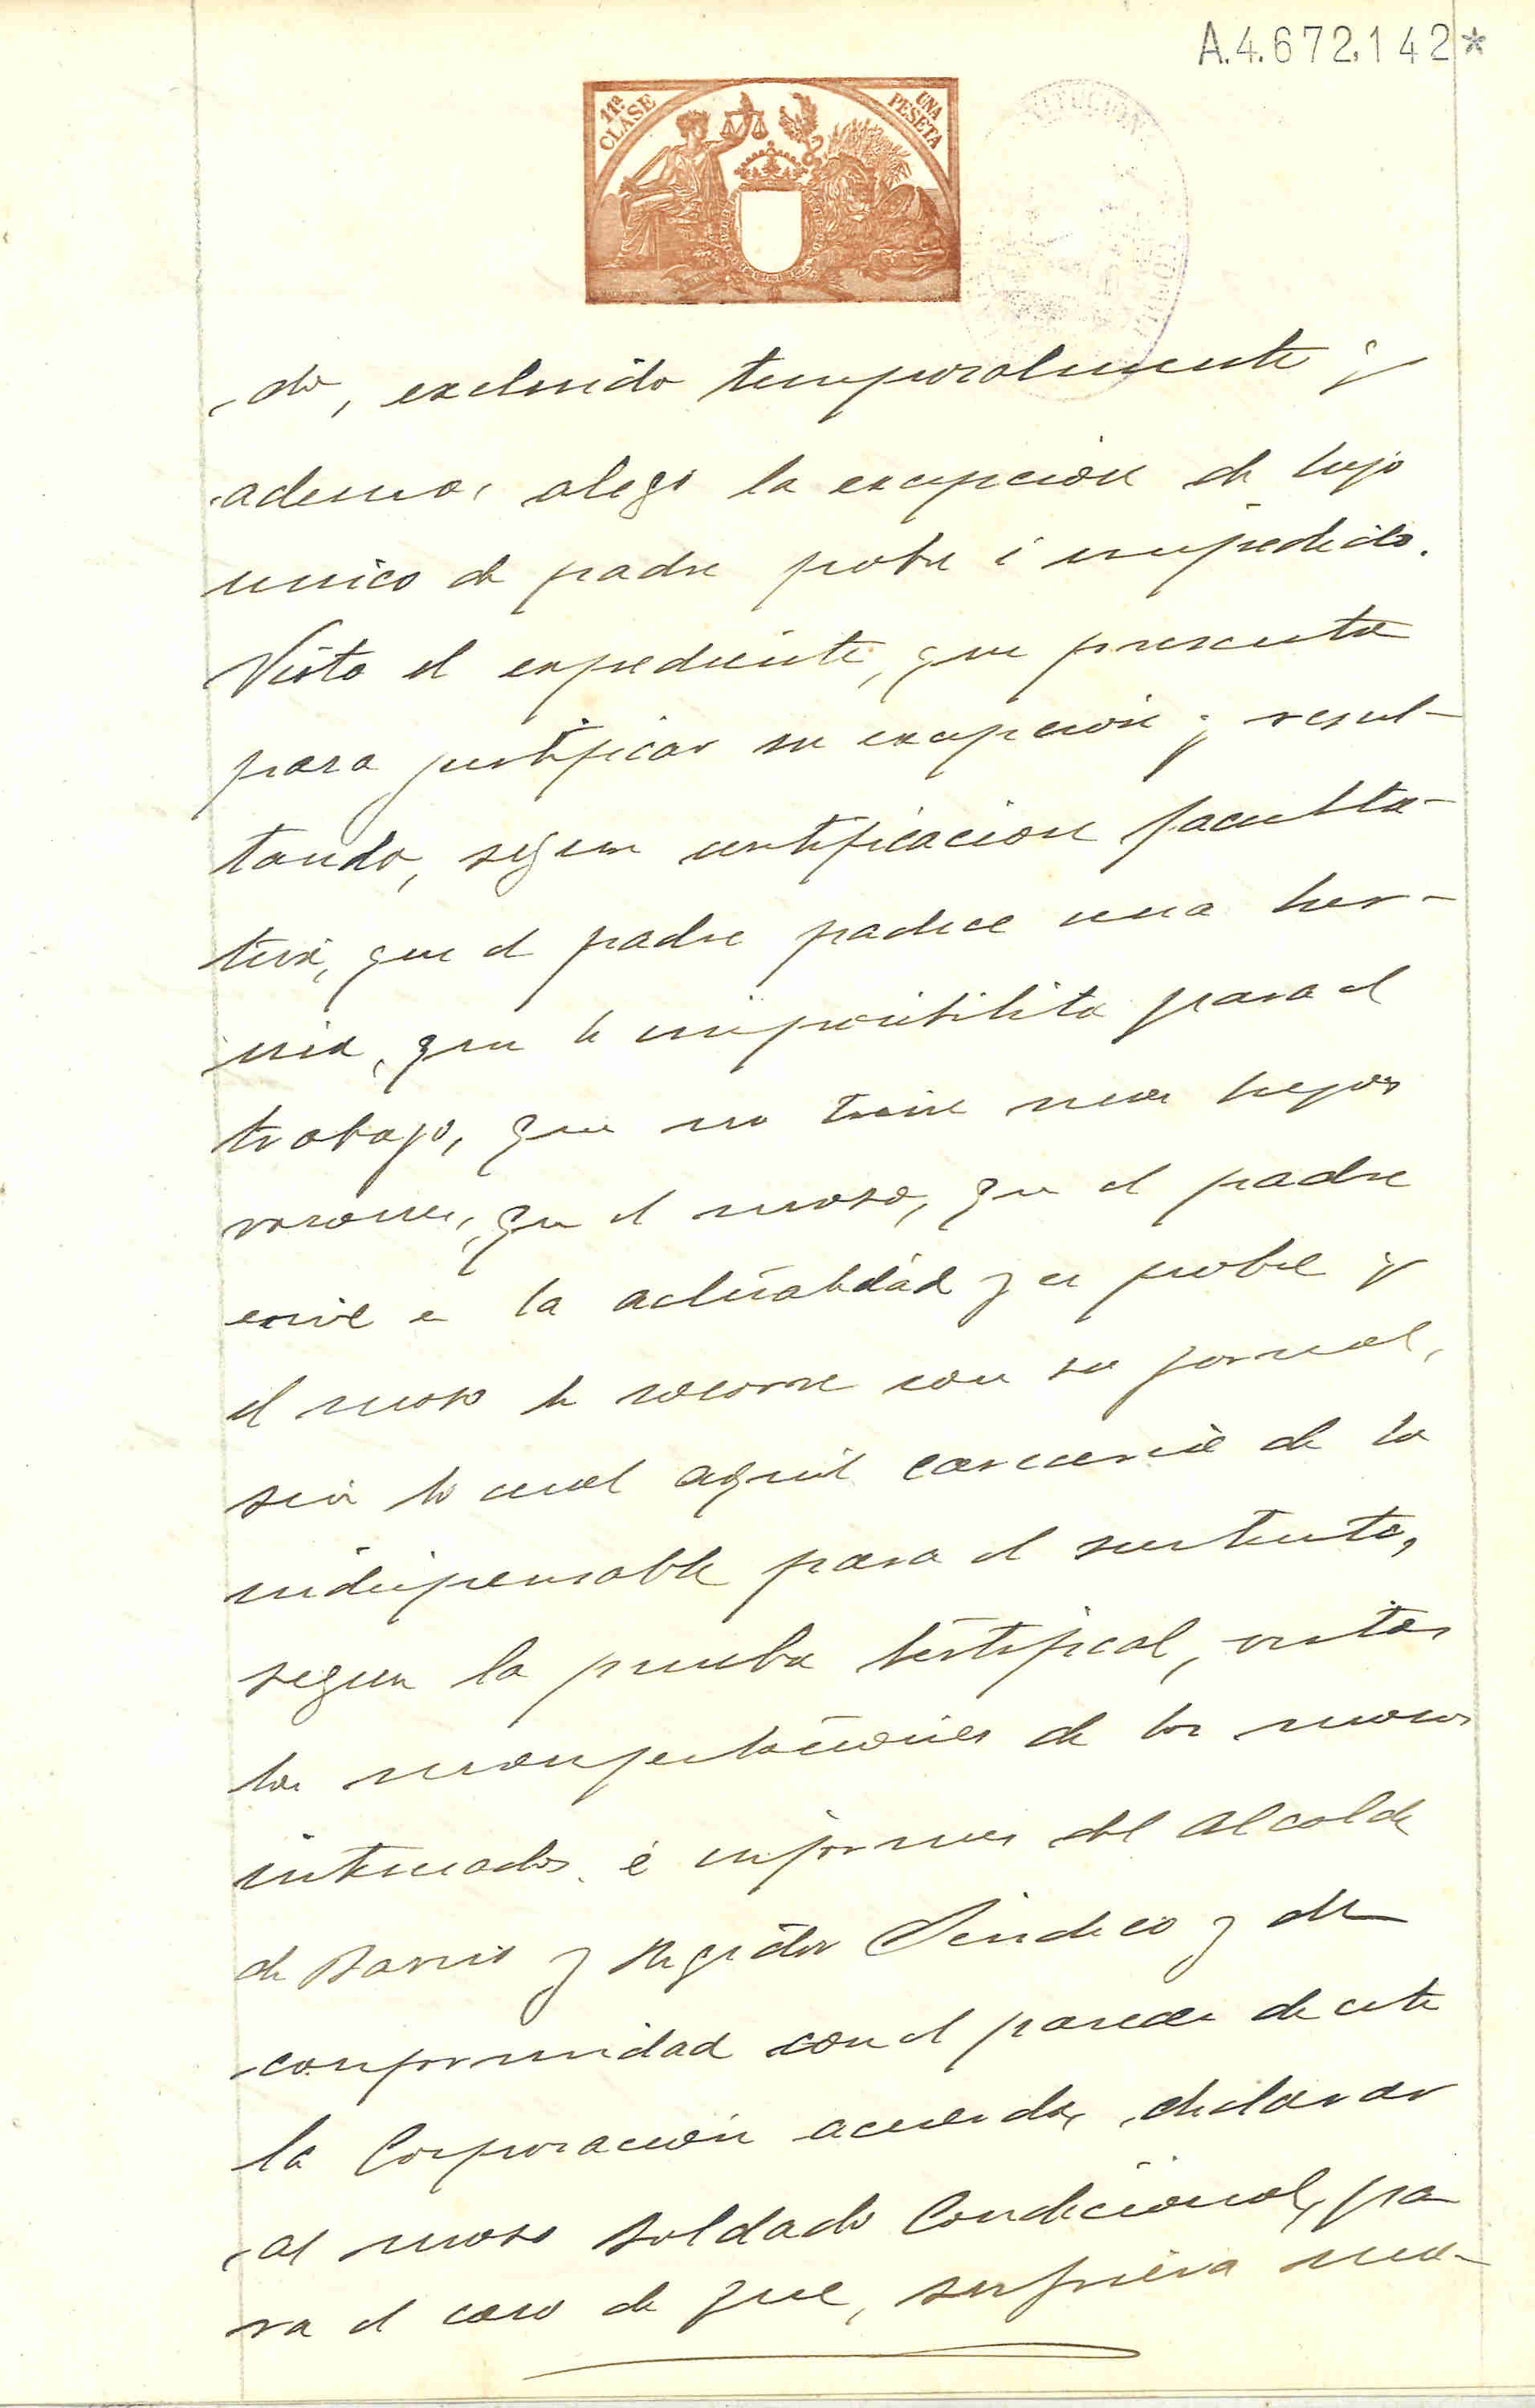 A.4.672.142*
11ª CLASE
UNA PESETA
do, excluido temporalmente y
ademas alego la excepción de hijo
unico de padre pobre é impedido.
Visto el expediente, que presenta
para justificar su excepción y resul-
tando, segun certificación faculta-
tiva, que el padre padece una her-
nia, que le imposibilita para el
trabajo, que no tiene mas hijos
varones, que el mozo, que el padre
es
la actualidad y es pobre y
el mozo le socorre con su jornal,
sin lo cual aquel careceria de lo
indispensable para el sustento,
segun la prueba testifical, vistas
las manifestaciones de los mozos
interesados é informes del Alcalde
de Barrio y Regidor Sindico y de
conformidad con el parecer de este
la Corporación acuerda, declarar
al mozo soldado Condicional, pa
ra el caso de que, sufriera